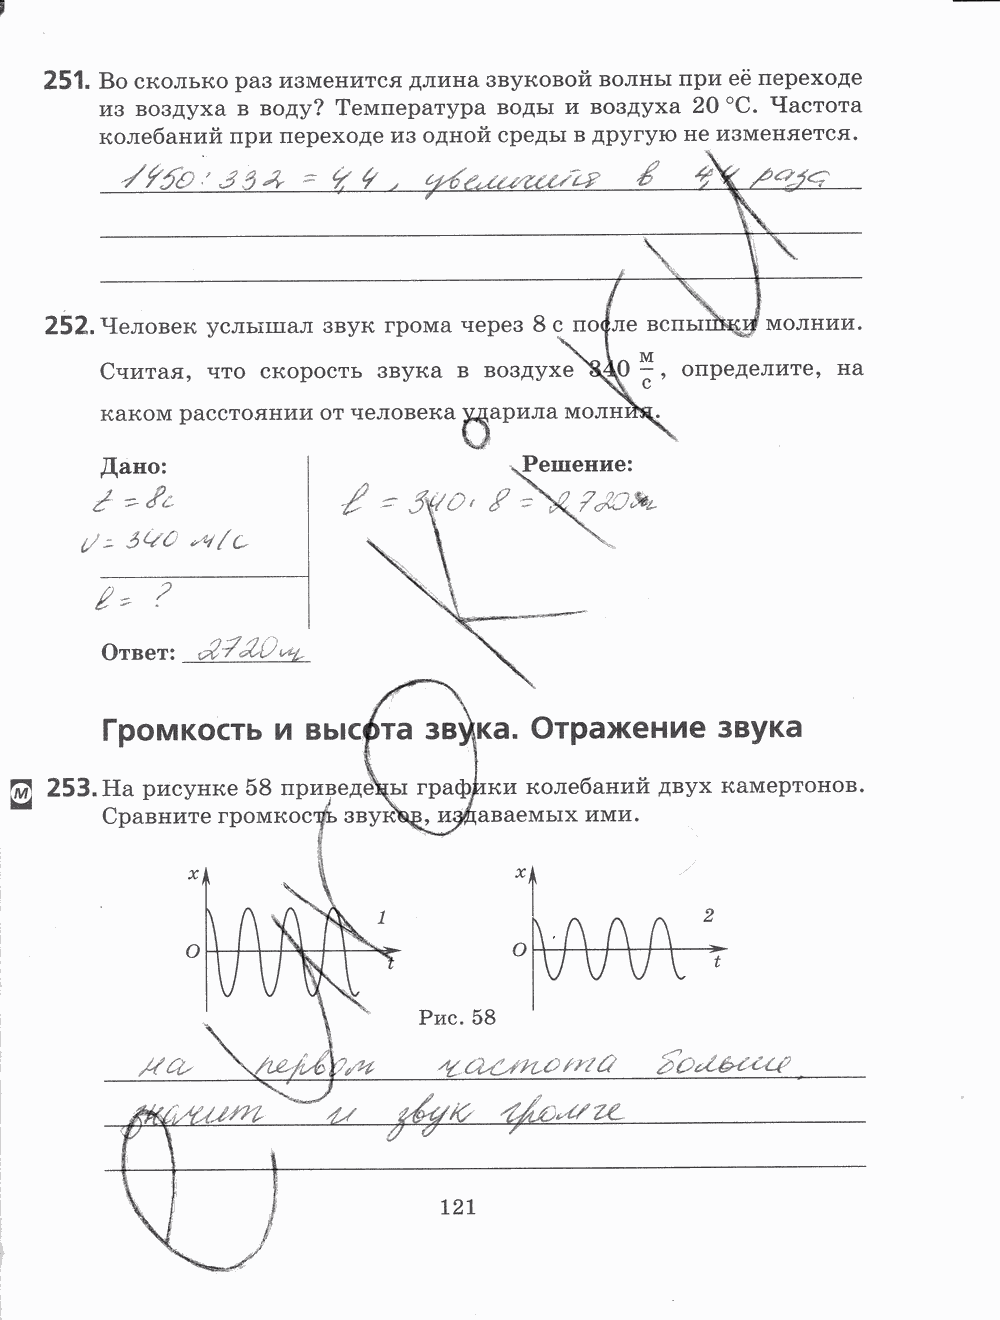 251. Во сколько раз изменится длина звуковой волны при её переходе
из воздуха в воду? Температура воды и воздуха 20 °С. Частота
колебаний при переходе из одной среды в другую не изменяется.
1450 : 332 = 4,4, увеличится в 4,4 раза
252. Человек услышал звук грома через 8 с после вспышки молнии.
Считая, что скорость звука в воздухе 340 м/с, определите, на
каком расстоянии от человека ударила молния.
Дано:
Решение:
t = 8с
l = 340 · 8 = 2720м
v = 340 м/с
l = ?
Ответ: 2720м
Громкость и высота звука. Отражение звука
м 253. На рисунке 58 приведены графики колебаний двух камертонов.
Сравните громкость звуков, издаваемых ими.
x
x
1
2
O
t
O
t
Рис. 58
на первом частота больше,
значит и звук громче
121